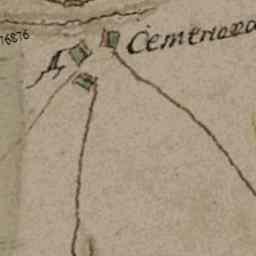 76876
Д Семенова